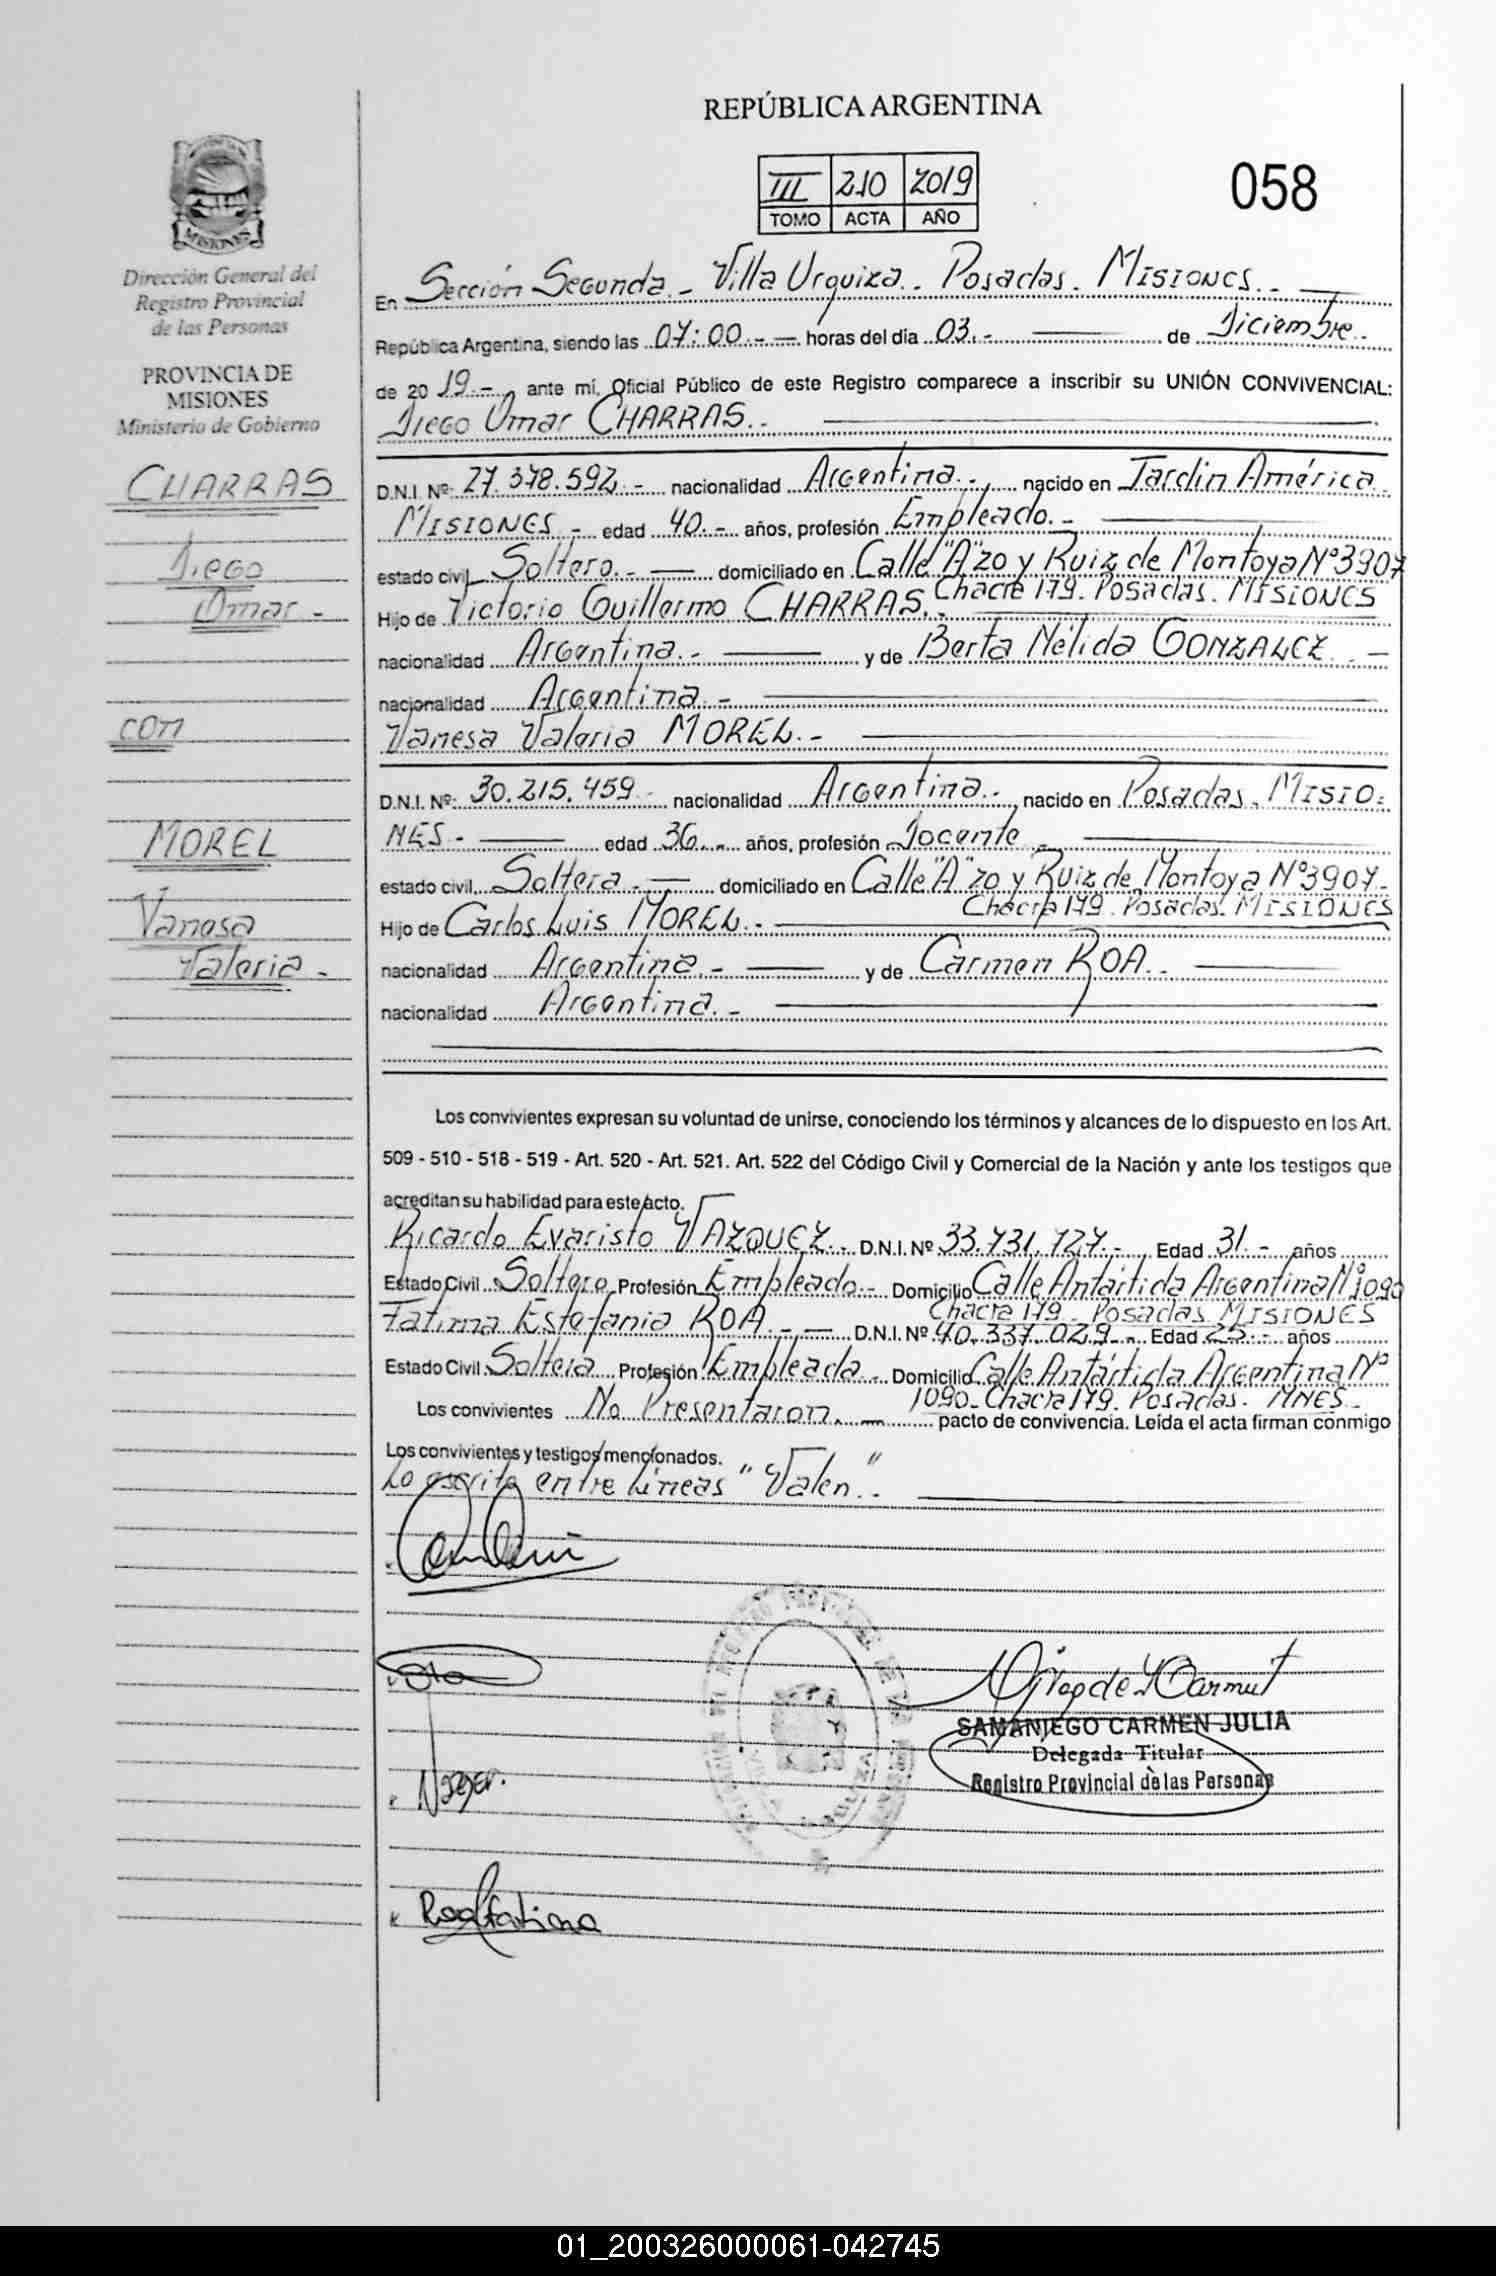 REPÚBLICA ARGENTINA
III 210 2019
TOMO ACTA AÑO
058
MISIONES
Dirección General del
Registro Provincial
de las Personas
PROVINCIA DE
MISIONES
Ministerio de Gobierno
CHARRAS
Diego
Omar.-
con
MOREL
Vanesa
Valeria.-
En Sección Segunda.- Villa Urquiza.. Posadas. MISIONES..-
República Argentina, siendo las 07:00.-- horas del día 03.- de Diciembre.-
de 20 19.- ante mí, Oficial Público de este Registro comparece a inscribir su UNIÓN CONVIVENCIAL:
Diego Omar CHARRAS..
D.N.I. Nº: 27.378.592.- nacionalidad Argentina.- nacido en Jardin América.
MISIONES.- edad 40.- años, profesión Empleado.-
estado civil Soltero.- domiciliado en Calle "A" 20 y Ruiz de Montoya Nº 3907
Chacra 179. Posadas. MISIONES
Hijo de Victorio Guillermo CHARRAS.-
nacionalidad Argentina.- y de Berta Nélida GONZALEZ.-
nacionalidad Argentina.-
Vanesa Valeria MOREL.-
D.N.I. Nº: 30.215.459.- nacionalidad Argentina.- nacido en Posadas. MISIO=
NES.- edad 36.- años, profesión Docente.-
estado civil Soltera.- domiciliado en Calle "A" 20 y Ruiz de Montoya Nº 3907-
Chacra 179. Posadas. MISIONES
Hijo de Carlos Luis MOREL.-
nacionalidad Argentina.- y de Carmen ROA.-
nacionalidad Argentina.-
Los convivientes expresan su voluntad de unirse, conociendo los términos y alcances de lo dispuesto en los Art.
509 - 510 - 518 - 519 - Art. 520 - Art. 521. Art. 522 del Código Civil y Comercial de la Nación y ante los testigos que
acreditan su habilidad para este acto.
Ricardo Evaristo VAZQUEZ.- D.N.I. Nº 33.731.727.- Edad 31.- años
Estado Civil Soltero Profesión Empleado.- Domicilio Calle Antártida Argentina Nº 1090
Chacra 179. Posadas MISIONES
Fatima Estefania ROA.- D.N.I. Nº 40.337.029.- Edad 23.- años
Estado Civil Soltera Profesión Empleada.- Domicilio Calle Antártida Argentina Nº
1090- Chacra 179. Posadas. MNES.-
Los convivientes No Presentaron.- pacto de convivencia. Leída el acta firman conmigo
Los convivientes y testigos mencionados.
Lo escrito entre Líneas "Valen".-
SAMANIEGO CARMEN JULIA
Delegada Titular
Registro Provincial de las Personas
Roa Fatima
01_200326000061-042745